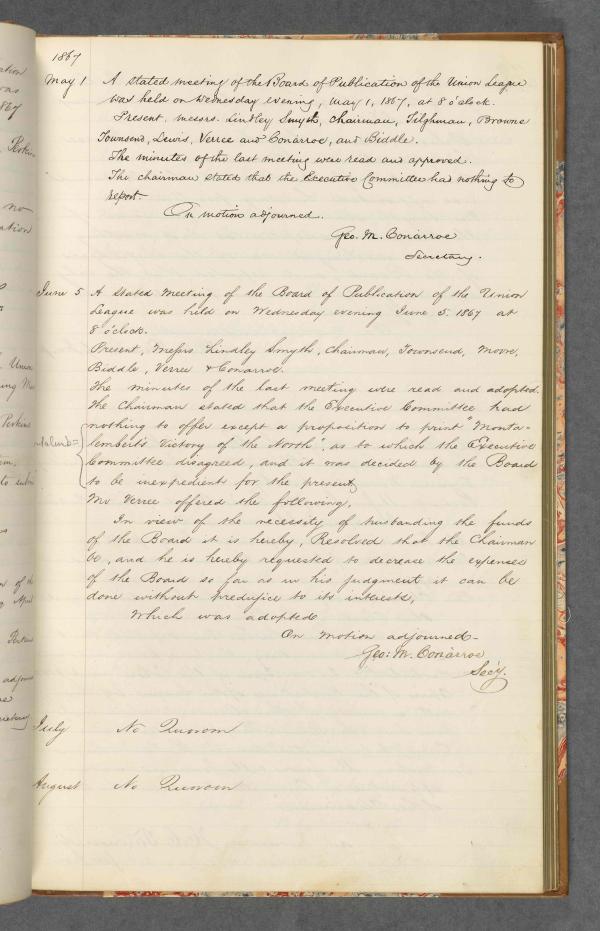 1867
May 1 A stated meeting of the Board of Publication of the Union League
was held on Wednesday evening, May 1, 1867, at 8 o'clock.
Present, Messrs. Lindley Smyth, Chairman, Tilghman, Browne
Townsend, Lewis, Verree and Conarroe, and Biddle.
The minutes of the last meeting were read and approved.
The chairman stated that the Executive Committee had nothing to
report.
On motion adjourned.
Geo. M. Conarroe
Secretary.
June 5 A Stated Meeting of the Board of Publication of the Union
League was held on Wednesday evening June 5. 1867 at
8 o'clock.
Present, Messrs Lindley Smyth, Chairman, Townsend, Moore,
Biddle, Verree & Conarroe.
The minutes of the last meeting were read and adopted.
The Chairman stated that the Executive Committee had
nothing to offer except a proposition to print "Monta-
lembert's Victory of the North", as to which the Executive
Committee disagreed, and it was decided by the Board
to be inexpedient for the present,
Mr Verree offered the following,
In view of the necessity of husbanding the funds
of the Board it is hereby, Resolved that the Chairman
be, and he is hereby requested to decrease the expenses
of the Board so far as in his judgment it can be
done without predujice to its interests,
Which was adopted
On motion adjourned-
Geo: M. Conarroe
Sec'y.
July No Quorom
August No Quorom